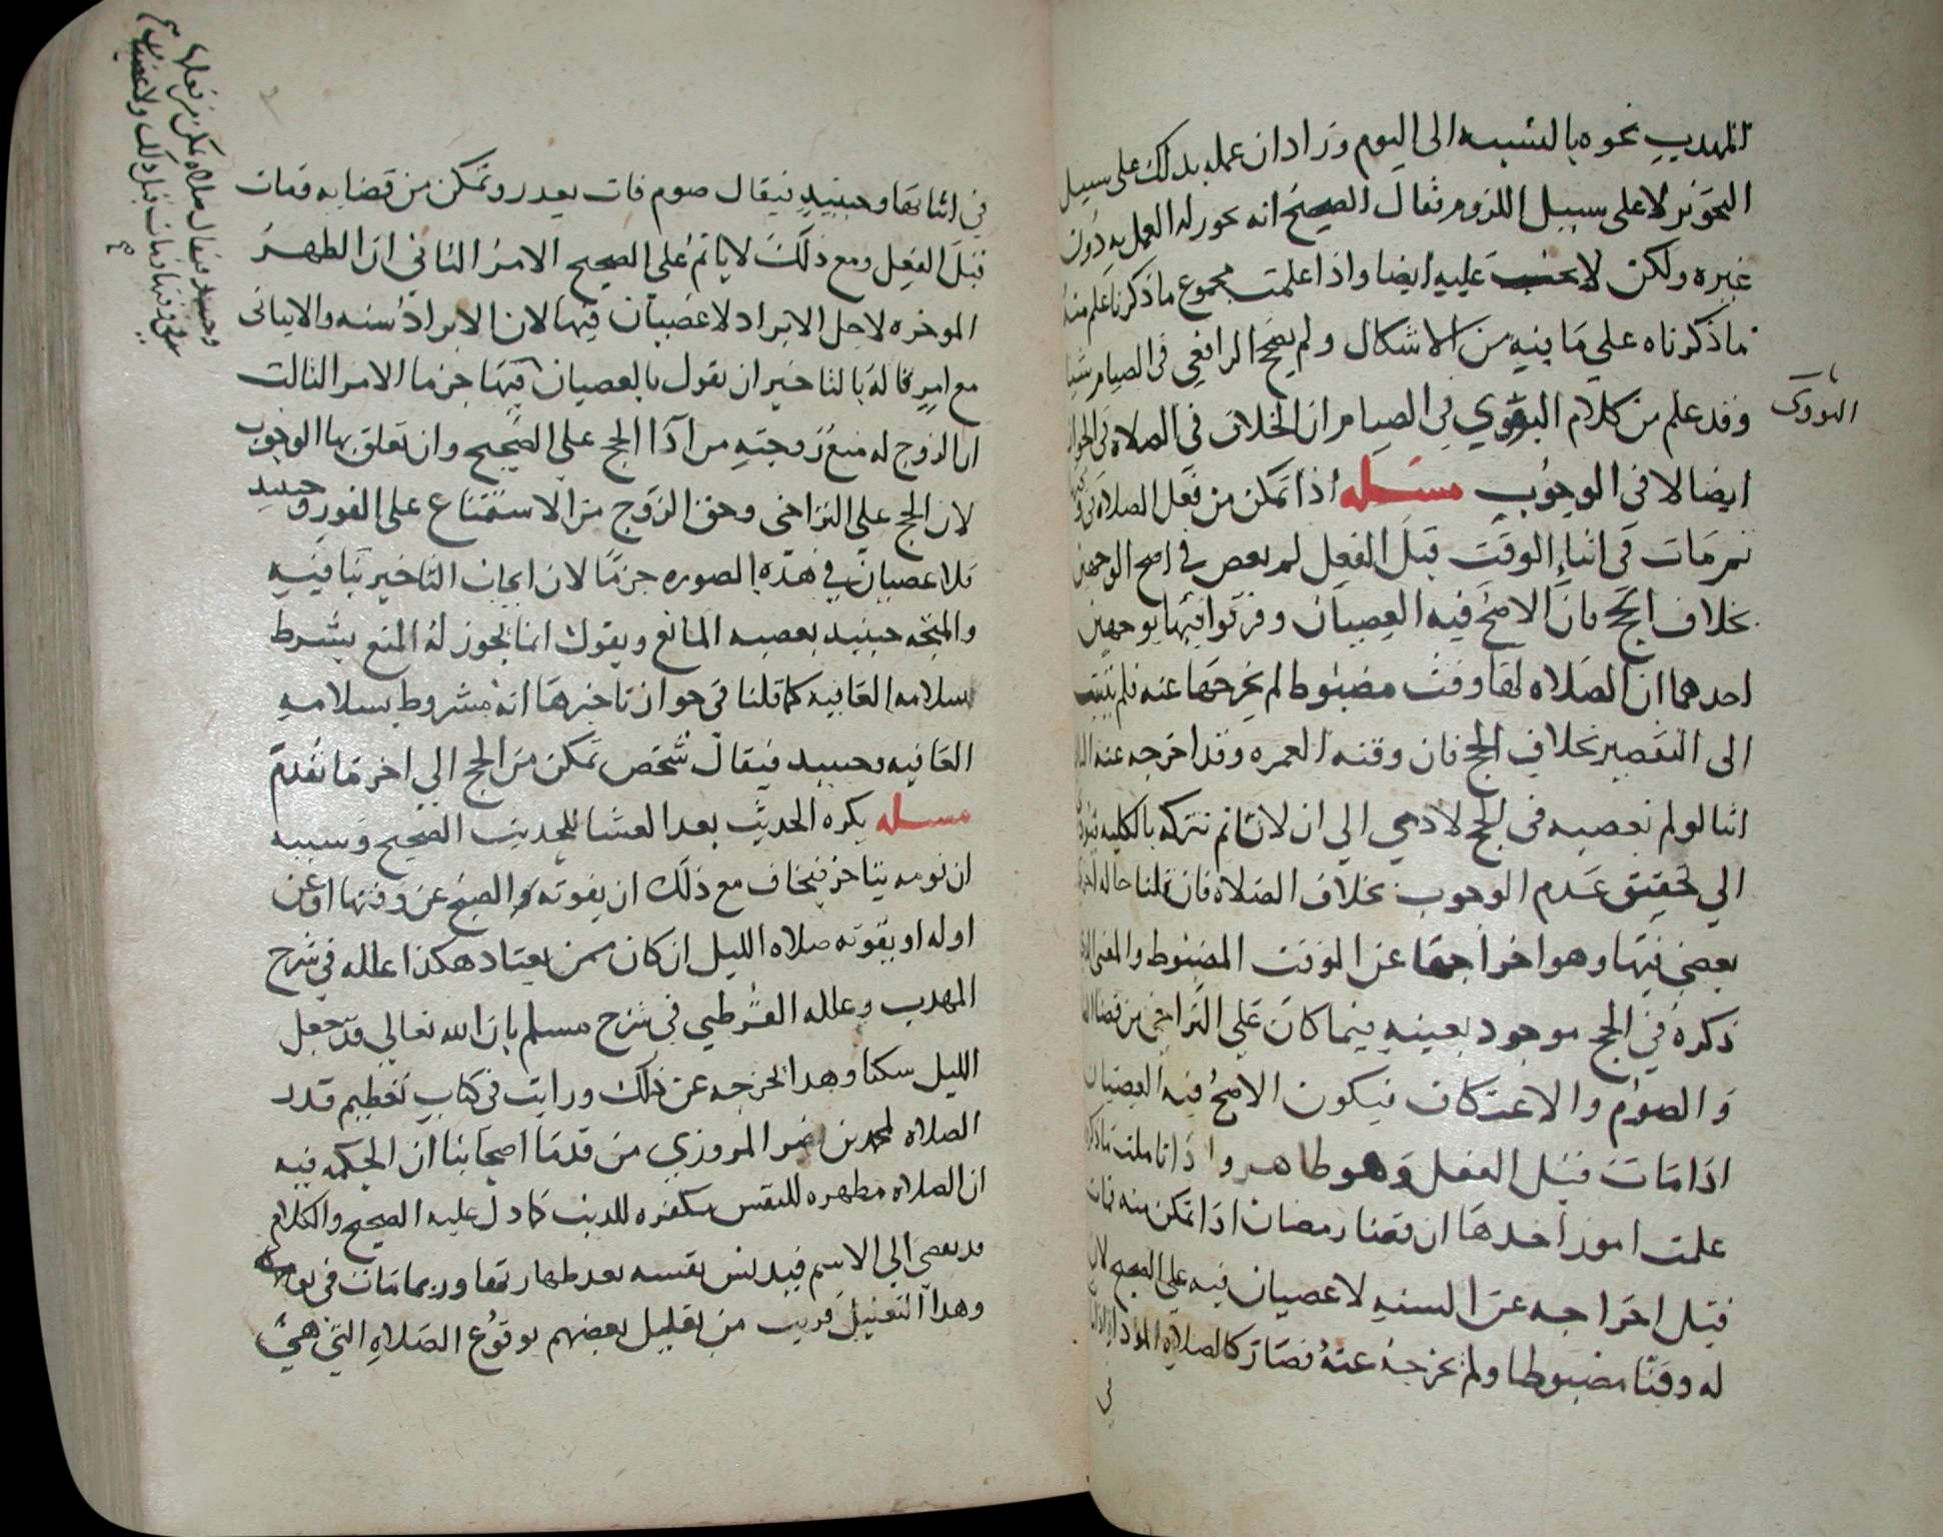 المهدب نحوه بالنسبه الى اليوم وزاد ان عمله بدلك على سبيل
التجويز لا على سبيل اللزوم فقال الصحيح انه يجوز له العمل به دون
غيره ولكن لا يجب عليه ايضا واذا علمت مجموع ما ذكرنا علم منه
ما ذكرناه على ما فيه من الاشكال ولم يصحح الرافعي في الصيام شيا
النووي
وقد علم من كلام البغوي في الصيام ان الخلاف في الصلاه في الجواز
ايضا لا في الوجوب مسله اذا تمكن من فعل الصلاه في
ثم مات في اثناء الوقت قبل الفعل لم يعص في اصح الوجهين
بخلاف الحج فان الاصح فيه العصيان وفرقوا فيها بوجهين
احدهما ان الصلاه لها وقت مضبوط لم يخرجها عنه فلم ينسب
الى التقصير بخلاف الحج فان وقته العمره وقد اخرجه عنه
انا لو لم نعصيه في الحج لادى الي ان لا ياثم بتركه بالكليه
الي تحقيق عدم الوجوب بخلاف الصلاه فان قلنا حاله
بعضي فيها وهو اخراجها عن الوقت المضبوط والمعنى
ذكره في الحج موجود بعينه فيما كان على التراخي من قضا
والصوم والاعتكاف فيكون الاصح فيه العصيان
اذا مات قبل الفعل وهو طاهر واذا تاملت ما ذكر
علمت امور احدها ان قضا رمضان اذا تمكن منه فمات
قبل اخراجه عن السنه لا عصيان فيه على الصحيح لان
له وقتا مضبوطا ولم يخرجه عنه فصار كالصلاه المؤداه
في
في اثنائها وحينيد فيقال صوم فات بعدر وتمكن من قضايه فمات
قبل الفعل ومع ذلك لا ياثم على الصحيح الامر الثاني ان الظهر
الموخره لاجل الابراد لا عصيان فيها لان الابراد سنه والاتيانى
مع امره له بالتاخير ان يقول بالعصيان فيها جزما الامر الثالث
ان الزوج له منع زوجته من ادا الحج على الصحيح وان تعلق بها الوجوب
لان الحج على التراخى وحق الزوج من الاستمتاع على الفور وحينيد
فلا عصيان في هذه الصوره جزما لان ايجاب التاخير ينافيه
والمتجه حينيد بعصيه المانع ويقول انما يجوز له المنع بشرط
سلامه العاقبه كما قلنا في جواز تاخيرها انه مشروط بسلامه
العاقبه وحينيد فيقال شخص تمكن من الحج الي اخر ما تقدم
مسله يكره الحديث بعد العشا للحديث الصحيح وسببه
ان نومه يتاخر فيخاف مع ذلك ان يفوته الصبح عن وقتها او عن
اوله او يفوته صلاه الليل ان كان ممن يعتاد هكذا علله في شرح
المهدب وعلله القرطبي في شرح مسلم بان الله تعالي قد جعل
الليل سكنا وهدا يخرجه عن ذلك ورايت في كتاب تعظيم قدر
الصلاه لمحمد بن نصر المروزي من قدما اصحابنا ان الحكمه فيه
ان الصلاه مطهره للنفس مكفره للدنب كما دل عليه الصحيح والكلام
قد يفضي الي الاسم فيدنس نفسه بعد طهارتها وربما مات في نومه
وهدا التعليل قريب من تعليل بعضهم بوقوع الصلاه التي هي
وحينيد فيقال صلاه تمكن من فعلها
في وقتها فمات قبل ذلك ولا عصيان